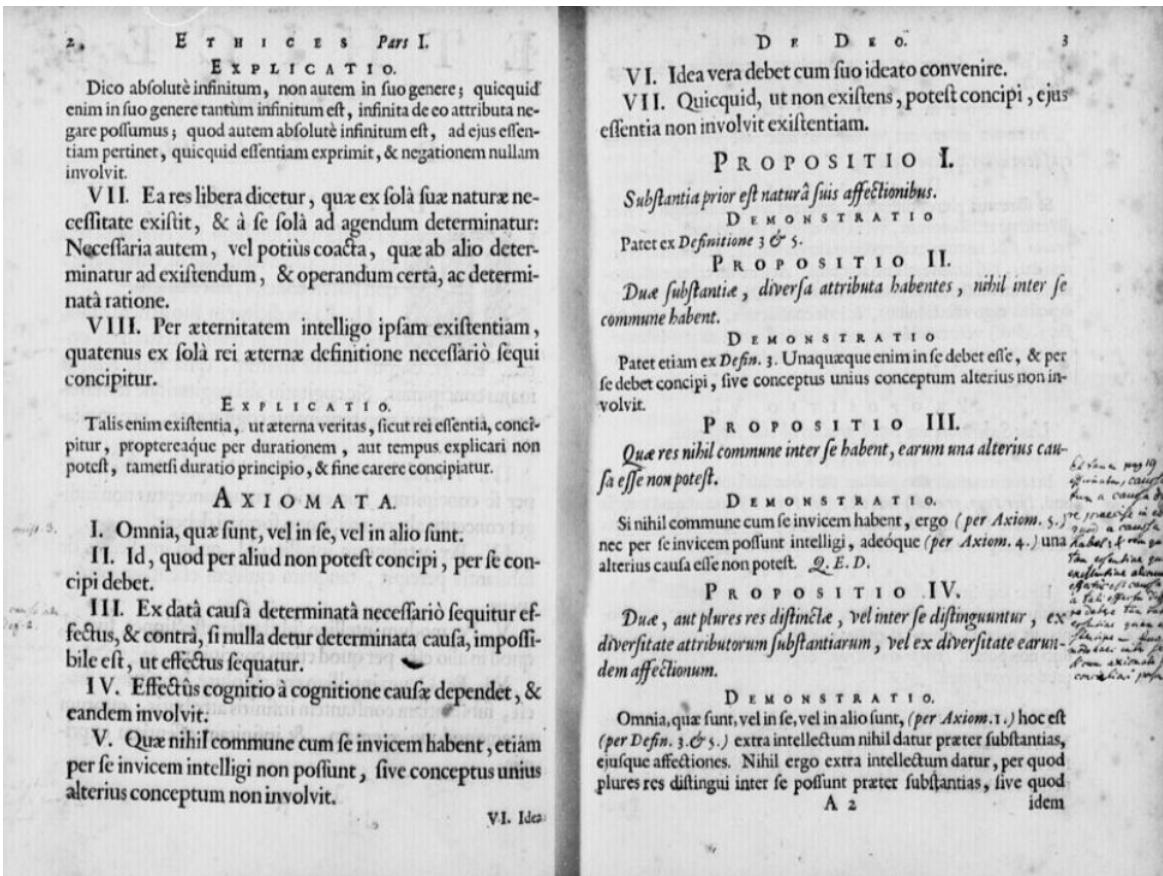 2. ETHICES Pars I.
EXPLICATIO.
Dico abſolutè infinitum, non autem in ſuo genere; quicquid
enim in ſuo genere tantùm infinitum eſt, infinita de eo attributa ne-
gare poſſumus; quod autem abſolutè infinitum eſt, ad ejus eſſen-
tiam pertinet, quicquid eſſentiam exprimit, & negationem nullam
involvit.
VII. Ea res libera dicetur, quæ ex ſolâ ſuæ naturæ ne-
ceſſitate exiſtit, & à ſe ſolâ ad agendum determinatur:
Neceſſaria autem, vel potiùs coacta, quæ ab alio deter-
minatur ad exiſtendum, & operandum certâ, ac determi-
natâ ratione.
VIII. Per æternitatem intelligo ipſam exiſtentiam,
quatenus ex ſolâ rei æternæ definitione neceſſariò ſequi
concipitur.
EXPLICATIO.
Talis enim exiſtentia, ut æterna veritas, ſicut rei eſſentia, conci-
pitur, proptereáque per durationem, aut tempus explicari non
poteſt, tametſi duratio principio, & fine carere concipiatur.
AXIOMATA.
I. Omnia, quæ ſunt, vel in ſe, vel in alio ſunt.
II. Id, quod per aliud non poteſt concipi, per ſe con-
cipi debet.
III. Ex datâ cauſâ determinatâ neceſſariò ſequitur ef-
fectus, & contrà, ſi nulla detur determinata cauſa, impoſſi-
bile eſt, ut effectus ſequatur.
IV. Effectûs cognitio à cognitione cauſæ dependet, &
eandem involvit.
V. Quæ nihil commune cum ſe invicem habent, etiam
per ſe invicem intelligi non poſſunt, ſive conceptus unius
alterius conceptum non involvit.
VI. Idea
DE DEO. 3
VI. Idea vera debet cum ſuo ideato convenire.
VII. Quicquid, ut non exiſtens, poteſt concipi, ejus
eſſentia non involvit exiſtentiam.
PROPOSITIO I.
Subſtantia prior eſt naturâ ſuis affectionibus.
DEMONSTRATIO
Patet ex Definitione 3 & 5.
PROPOSITIO II.
Duæ ſubſtantiæ, diverſa attributa habentes, nihil inter ſe
commune habent.
DEMONSTRATIO
Patet etiam ex Defin. 3. Unaquæque enim in ſe debet eſſe, & per
ſe debet concipi, ſive conceptus unius conceptum alterius non in-
volvit.
PROPOSITIO III.
Quæ res nihil commune inter ſe habent, earum una alterius cau-
ſa eſſe non poteſt.
DEMONSTRATIO.
Si nihil commune cum ſe invicem habent, ergo (per Axiom. 5.)
nec per ſe invicem poſſunt intelligi, adeóque (per Axiom. 4.) una
alterius cauſa eſſe non poteſt. Q. E. D.
PROPOSITIO IV.
Duæ, aut plures res diſtinctæ, vel inter ſe diſtinguuntur, ex
diverſitate attributorum ſubſtantiarum, vel ex diverſitate earun-
dem affectionum.
DEMONSTRATIO.
Omnia, quæ ſunt, vel in ſe, vel in alio ſunt, (per Axiom. 1.) hoc eſt
(per Defin. 3. & 5.) extra intellectum nihil datur præter ſubſtantias,
ejuſque affectiones. Nihil ergo extra intellectum datur, per quod
plures res diſtingui inter ſe poſſunt præter ſubſtantias, ſive quod
A 2 idem